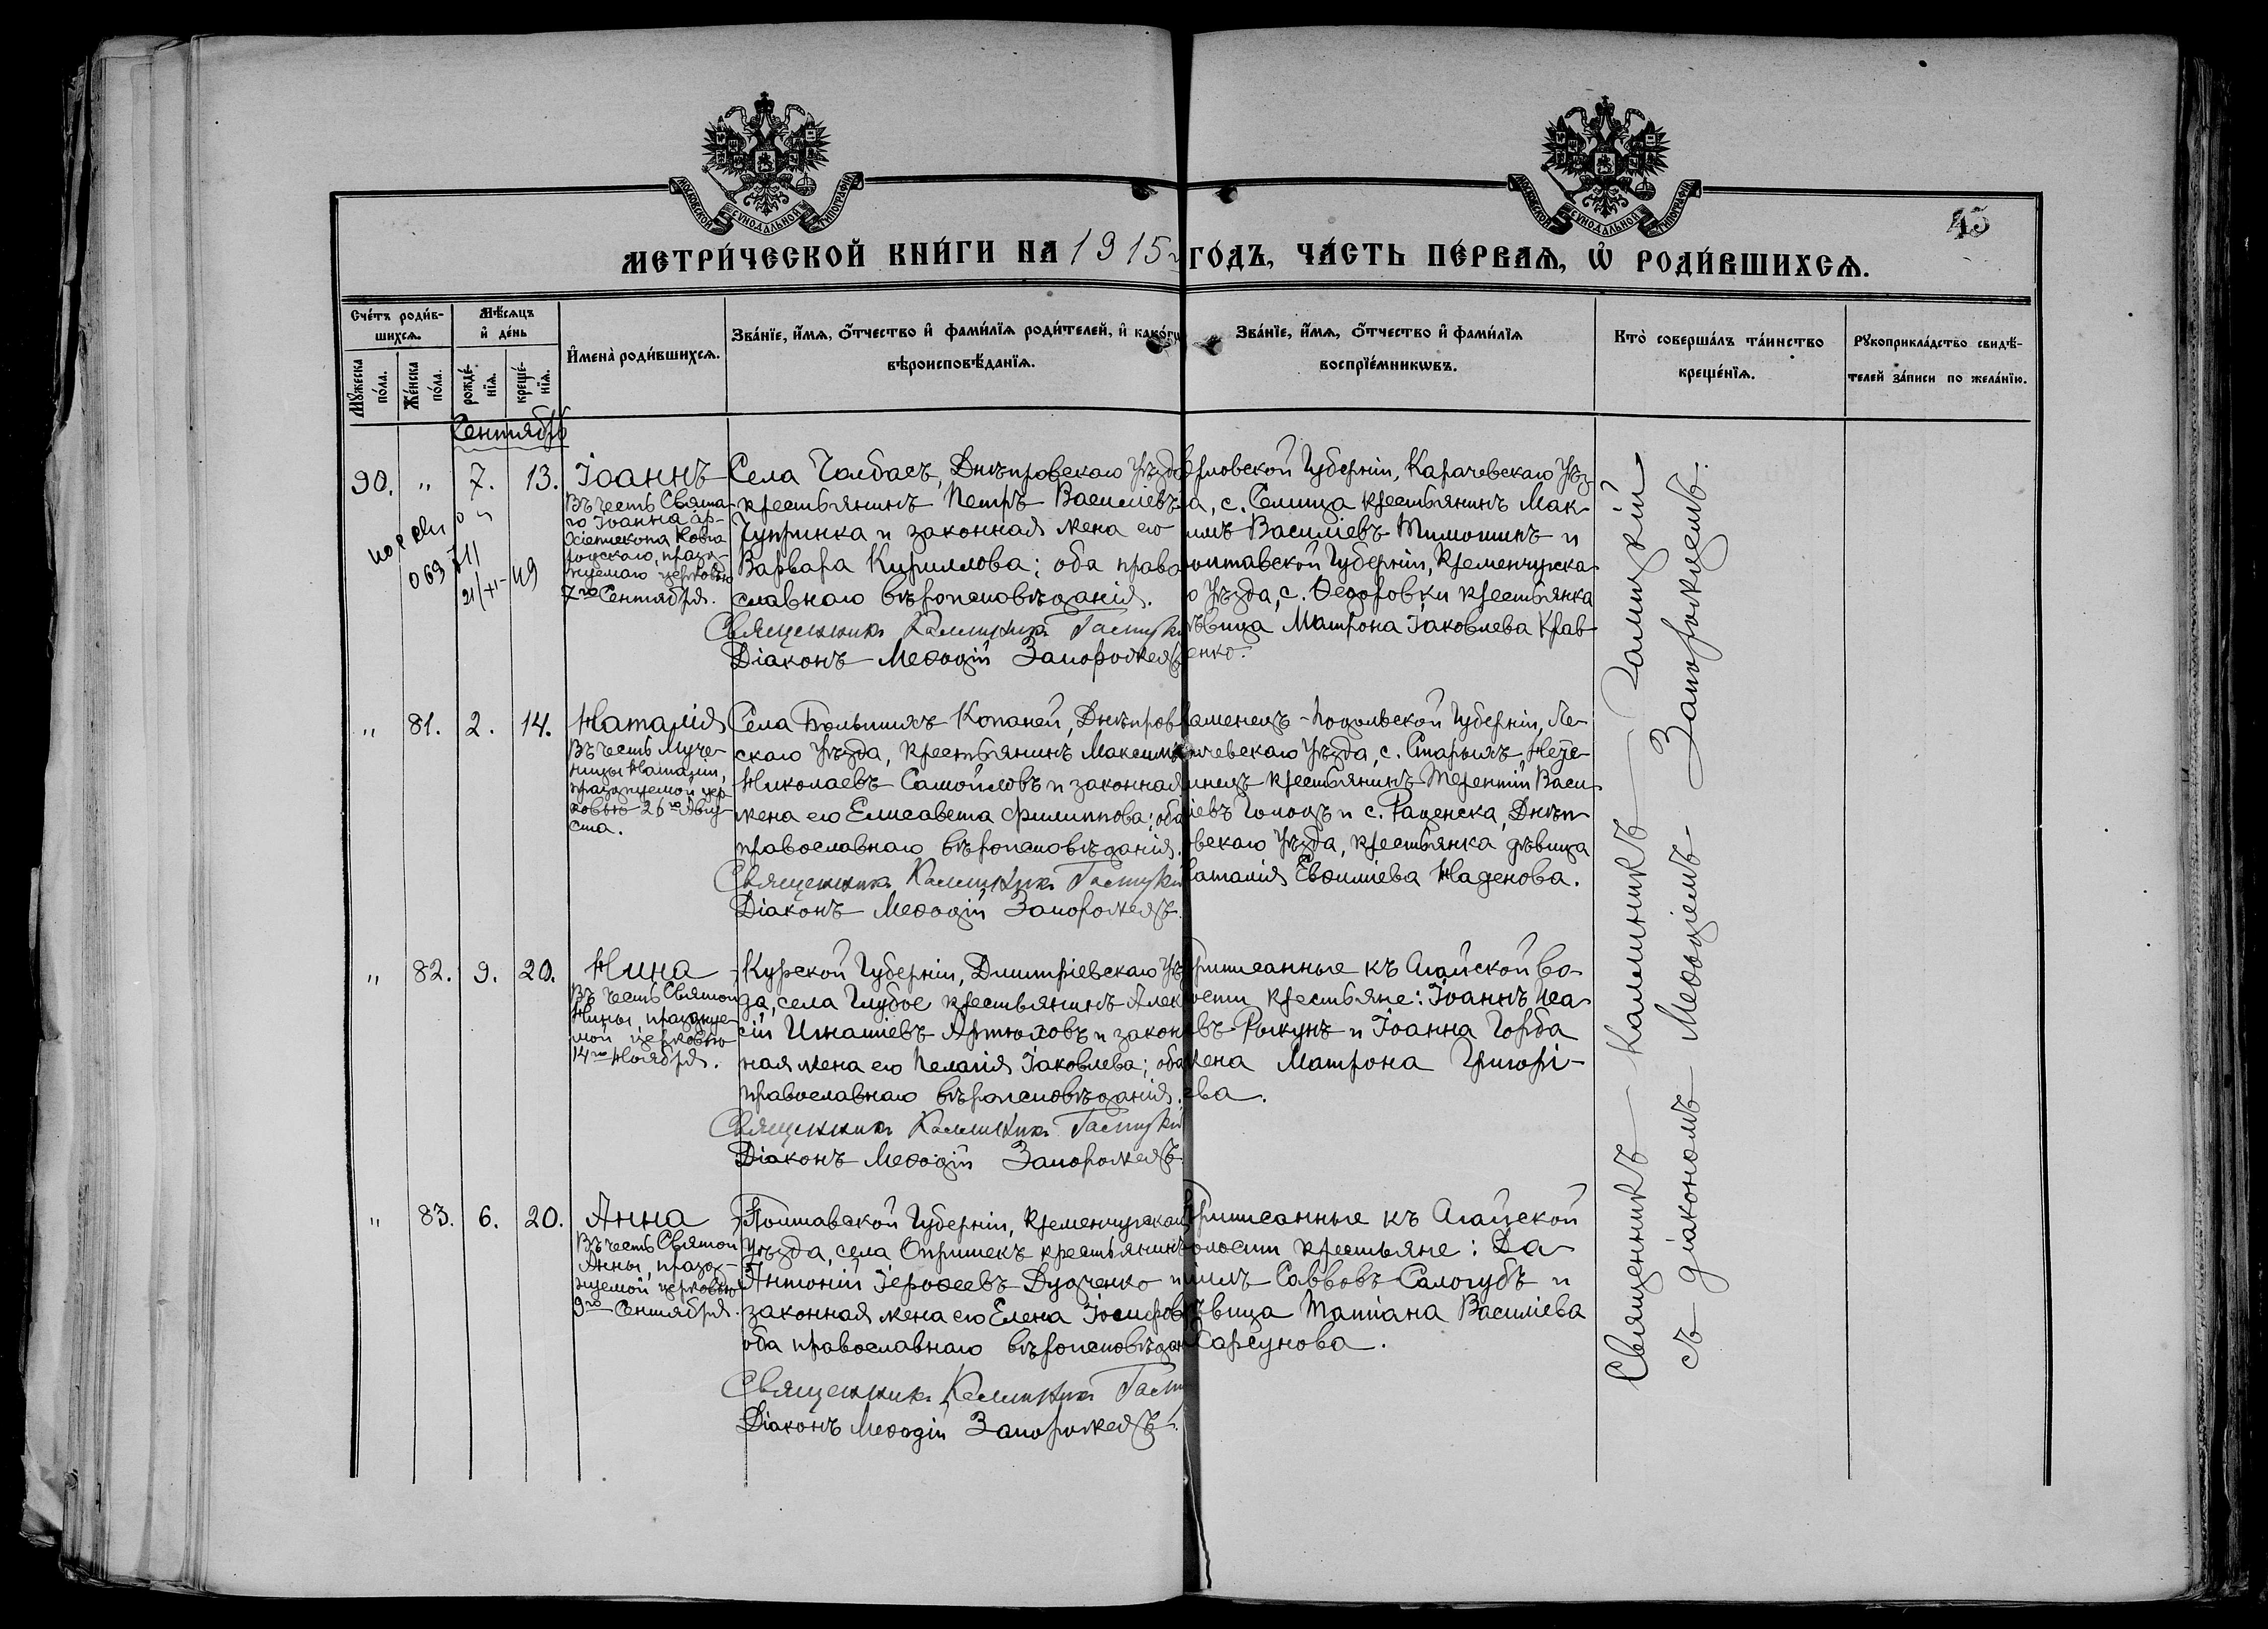 МОСКОВСКОЙ СѴНОДАЛЬНОЙ ТИПОГРАФІИ
МОСКОВСКОЙ СѴНОДАЛЬНОЙ ТИПОГРАФІИ
45
МЕТРИ́ЧЕСКОЙ КНИ́ГИ НА 1915 ГО́ДЪ, ЧА́СТЬ ПЕ́РВАѦ, Ѡ҆ РОДИ́ВШИХСѦ.
Сче́тъ роди́в-
шихсѧ.
Мꙋжеска по́ла.
Же́нска по́ла.
Мѣ́сѧцъ
и҆ де́нь
рожде́-
нїѧ.
креще́-
нїѧ.
И҆мена̀ роди́вшихсѧ.
Зва́нїе, и҆́мѧ, ѻ҆́тчество и҆ фами́лїѧ роди́телей, и҆ како́гѡ
вѣроисповѣ́данїѧ.
Зва́нїе, и҆́мѧ, ѻ҆́тчество и҆ фами́лїѧ
воспрїе́мникѡвъ.
Кто̀ соверша́лъ та́инство
креще́нїѧ.
Рꙋкоприкла́дство свидѣ́-
телей за́писи по жела́нїю.
Сентябрь
90. " 7. 13. Іоаннъ
Въ честь Свята-
го Іоанна ар-
хіепископа Новго
родскаго, празд-
нуемаго церковью
7го Сентября.
069 711
21/XI-49
Села Чалбасъ, Днѣпровскаго уѣзда
крестьянинъ Петръ Василіевъ
Чупринка и законная жена его
Варвара Кириллова; оба право
славнаго вѣроисповѣданія.
Священникъ Каллиникъ Галицкій
Діаконъ Меѳодій Запорожецъ
рловской губерніи, Карачевскаго уѣз-
а, с. Селища крестьянинъ Мак-
имъ Василіевъ Тимошинъ и
олтавской губерніи, Кременчугска
о уѣзда, с. Ѳедоровки крестьянка
ѣвица Матрона Іаковлева Крав-
енко.
" 81. 2. 14. Наталія
Въ честь Муче-
ницы Наталіи,
празднуемой цер
ковью 26го Авгу-
ста.
Села Большихъ Копаней, Днѣпров
скаго уѣзда, крестьянинъ Максимъ
Николаевъ Самойловъ и законная
жена его Елисавета Филиппова; оба
православнаго вѣроисповѣданія.
Священникъ Каллиникъ Галицкій
Діаконъ Меѳодій Запорожецъ.
аменецъ-Подольской губерніи, Ле-
ичевскаго уѣзда, с. Старыхъ
крестьянинъ Терентій Васи-
іевъ и с. Раденска, Днѣп-
вскаго уѣзда, крестьянка дѣвица
аталія Евѳиміева Наденова.
" 82. 9. 20. Нина
Въ честь Святой
Нины, празднуе-
мой церковью
14го Ноября.
Курской губерніи, Дмитріевскаго уѣ
да, села Глубое крестьянинъ Алек
сій Игнатіевъ Артюховъ и закон
ная жена его Пелагія Іаковлева; оба
православнаго вѣроисповѣданія.
Священникъ Каллиникъ Галицкій
Діаконъ Меѳодій Запорожецъ.
риписанные къ Агайской во-
ости крестьяне: Іоаннъ Иса-
въ Рыкунъ и Іоанна Горба
жена Матрона Григорі-
ева.
" 83. 6. 20. Анна
Въ честь Святой
Анны, празд-
нуемой церковью
9го Сентября.
Полтавской губерніи, Кременчугскаго
уѣзда, села Опришекъ крестьянинъ
Антоній Іероѳеевъ Дудченко и
законная жена его Елена Іосифов
оба православнаго вѣроисповѣдан
Священникъ Каллиникъ Гали
Діаконъ Меѳодій Запорожецъ.
риписанные къ Агайской
олости крестьяне: Да-
іилъ Саввовъ Салогубъ и
ѣвица Татіана Василіева
Карсунова.
Священникъ Каллиникъ Галицкій
съ діакономъ Меѳодіемъ Запорожцемъ.